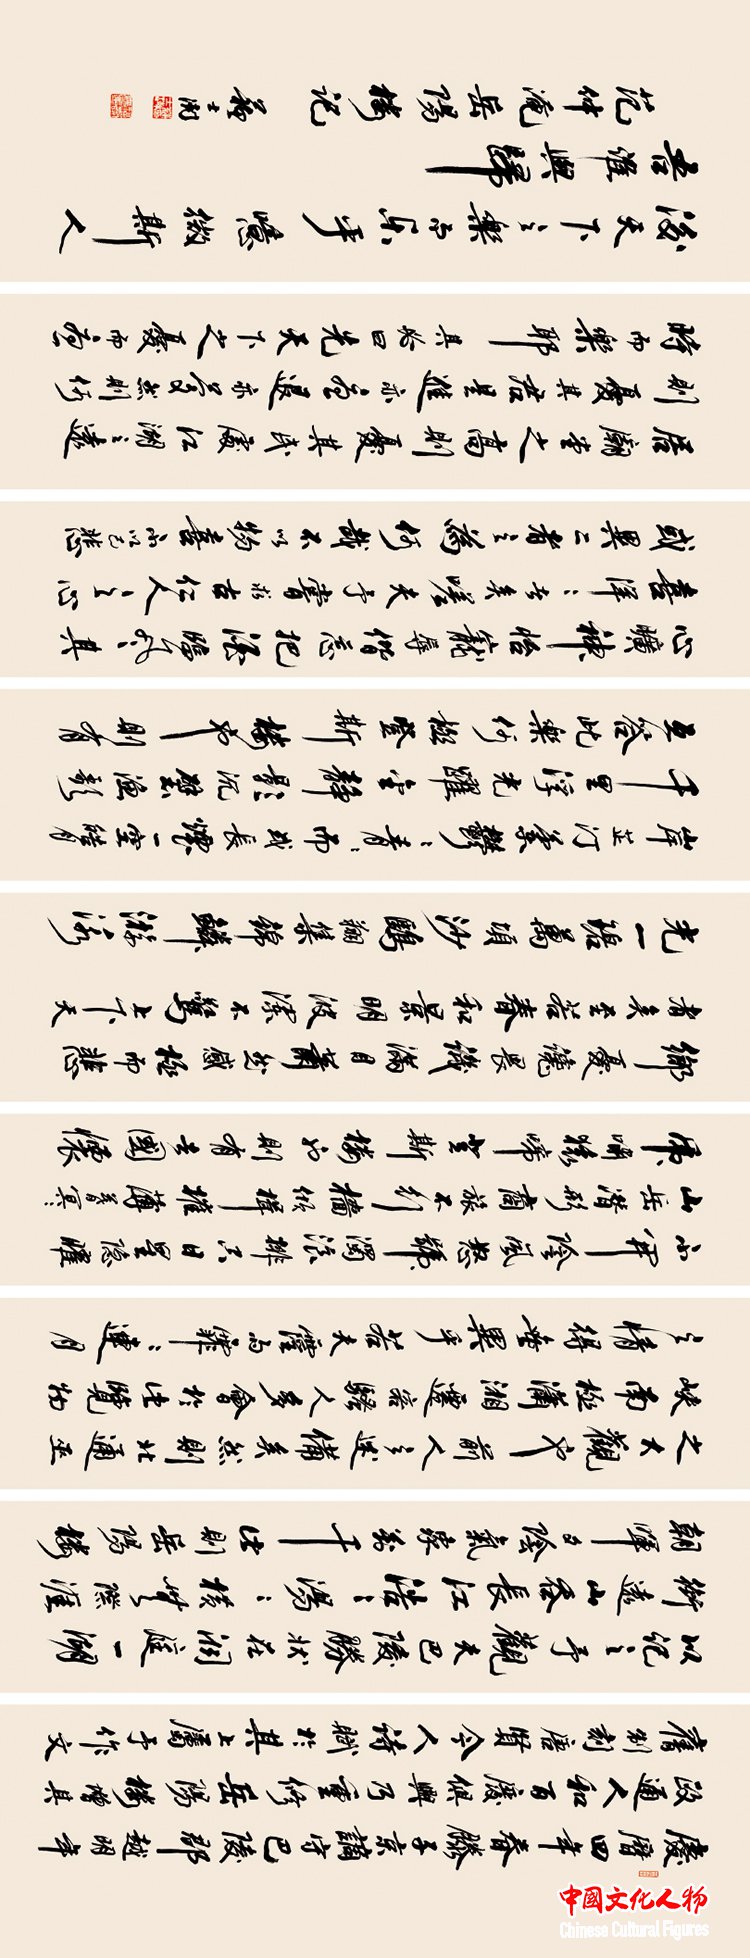 慶曆四年春滕子京謫守巴陵郡越明年
政通人和百廢俱興乃重修岳陽樓增其
舊制刻唐賢今人詩賦於其上屬予作文
以記之予觀夫巴陵勝狀在洞庭一湖
銜遠山吞長江浩浩湯湯橫無際涯
朝暉夕陰氣象萬千此則岳陽樓
之大觀也前人之述備矣然則北通巫
峽南極瀟湘遷客騷人多會於此覽物
之情得無異乎若夫霪雨霏霏連月
不開陰風怒號濁浪排空日星隱曜
山岳潛形商旅不行檣傾楫摧薄暮冥冥
虎嘯猿啼登斯樓也則有去國懷
鄉憂讒畏譏滿目蕭然感極而悲
者矣至若春和景明波瀾不驚上下天
光一碧萬頃沙鷗翔集錦鱗游泳
岸芷汀蘭鬱鬱青青而或長煙一空皓月
千里浮光躍金靜影沉璧漁歌
互答此樂何極登斯樓也則有
心曠神怡寵辱偕忘把酒臨風其
喜洋洋者矣嗟夫予嘗求古仁人之心
或異二者之為何哉不以物喜不以己悲
居廟堂之高則憂其民處江湖之遠
則憂其君是進亦憂退亦憂然則何
時而樂耶其必曰先天下之憂而憂
後天下之樂而樂乎噫微斯人
吾誰與歸
范仲淹岳陽樓記 蘇士澍
中國文化人物
Chinese Cultural Figures